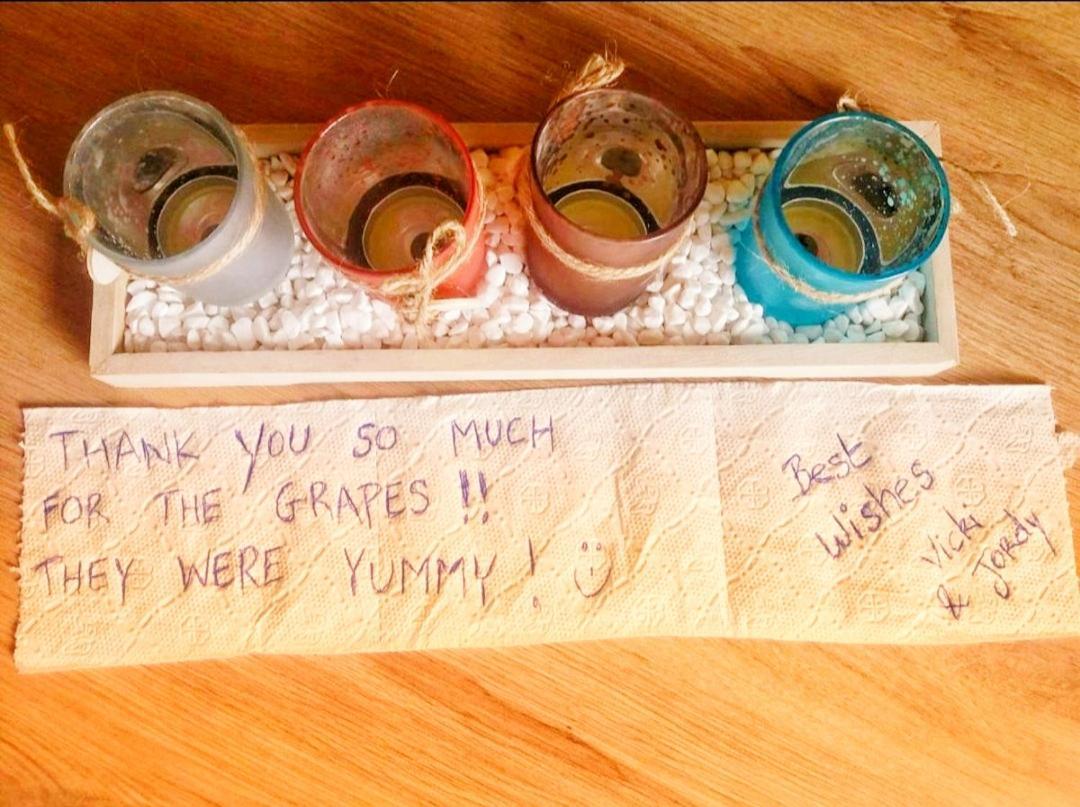 THANK YOU SO MUCH
FOR THE GRAPES !!
THEY WERE YUMMY !
Best
Wishes
Vicki
& Jordy